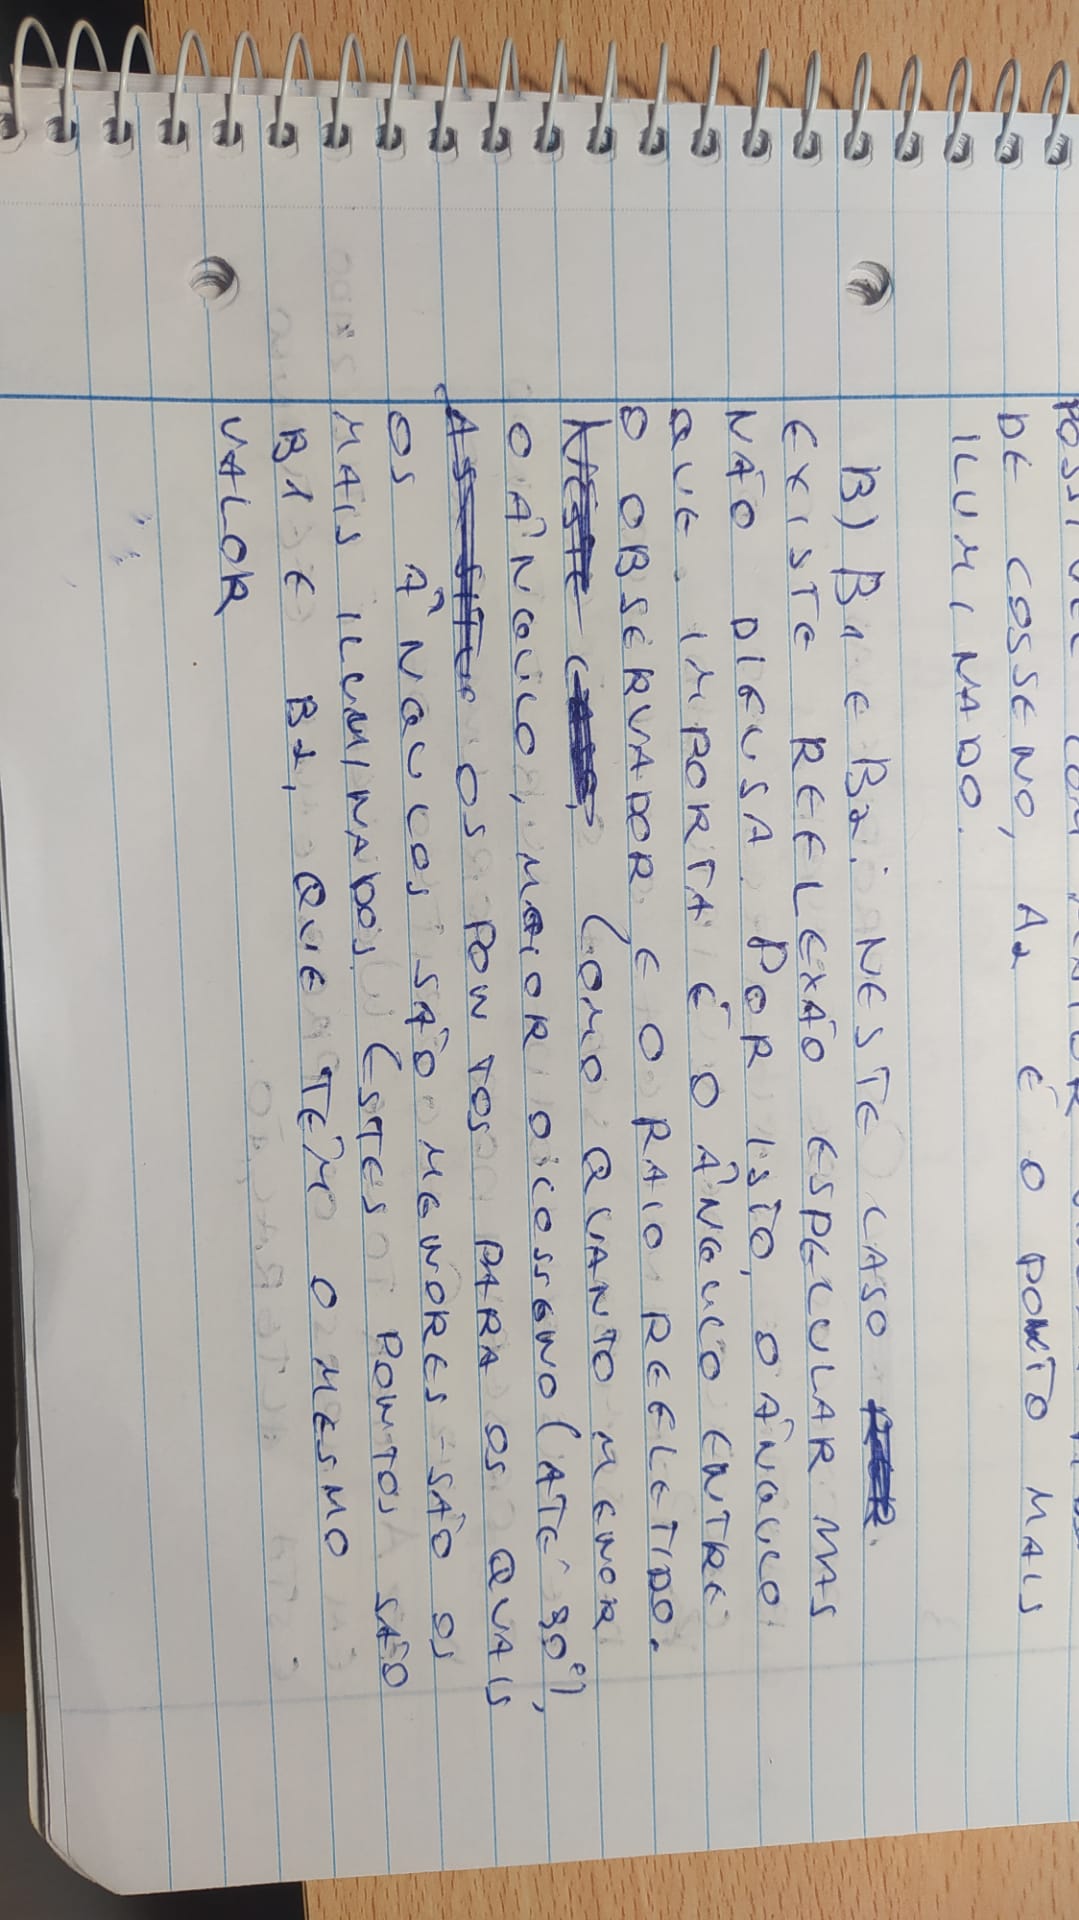 DE COSSENO, A2 É O PONTO MAIS
ILUMINADO.
B) B1 E B2. NESTE CASO
EXISTE REFLEXÃO ESPECULAR MAS
NÃO DIFUSA. POR ISTO, O ÂNGULO
QUE IMPORTA É O ÂNGULO ENTRE
O OBSERVADOR E O RAIO REFLETIDO.
NESTE CASO, COMO QUANTO MENOR
O ÂNGULO, MAIOR O COSSENO (ATÉ 90°),
AS SITU OS PONTOS PARA OS QUAIS
OS ÂNGULOS SÃO MENORES SÃO OS
MAIS ILUMINADOS. ESTES PONTOS SÃO
B1 E B2, QUE TÊM O MESMO
VALOR